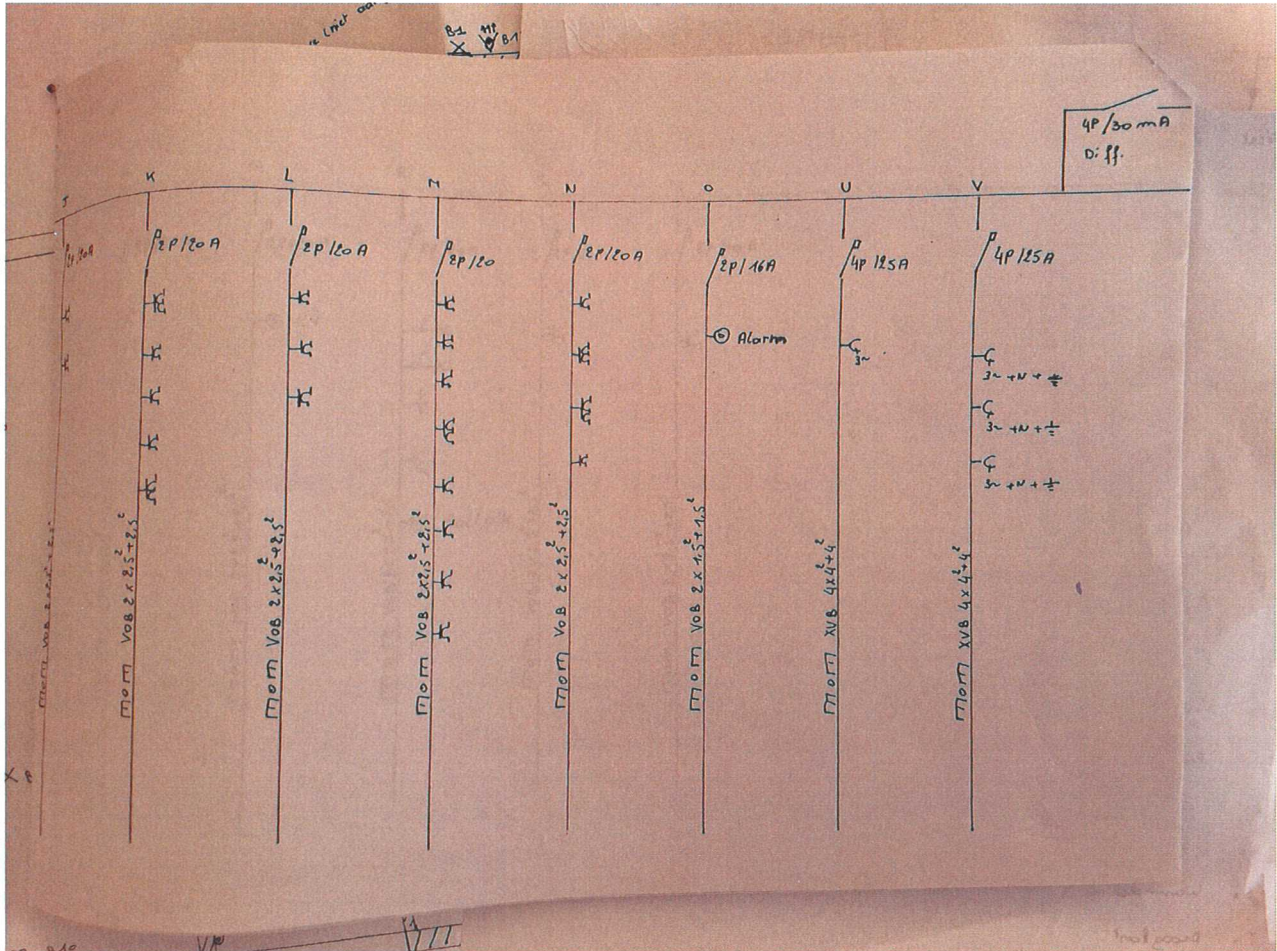 B1
B1
4P/30mA
Diff.
K
L
M
N
O
U
V
2P/20A
2P/20A
2P/20
2P/20A
2P/16A
4P/25A
4P/25A
Alarm
3~
3~ +N+
3~ +N+
3~ +N+
mom VOB 2x2,5²+2,5²
mom VOB 2x2,5²+2,5²
mom VOB 2x2,5²+2,5²
mom VOB 2x2,5²+2,5²
mom VOB 2x1,5²+1,5²
mom XVB 4x4²+4²
mom XVB 4x4²+4²